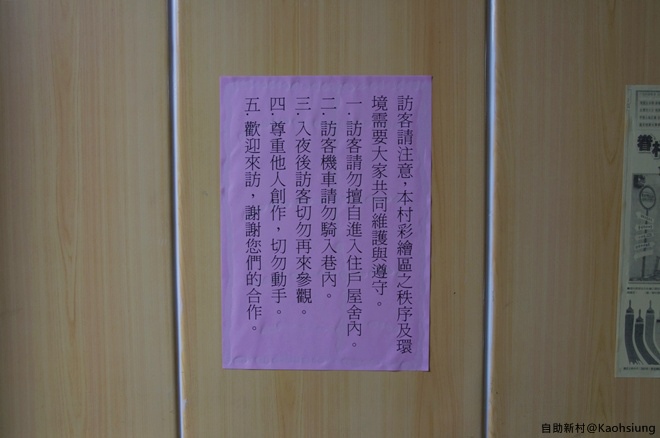 訪客請注意，本村彩繪區之秩序及環
境需要大家共同維護與遵守。
一．訪客請勿擅自進入住戶屋舍內。
二．訪客機車請勿騎入巷內。
三．入夜後訪客切勿再來參觀。
四．尊重他人創作，切勿動手。
五．歡迎來訪，謝謝您們的合作。
自助新村@Kaohsiung